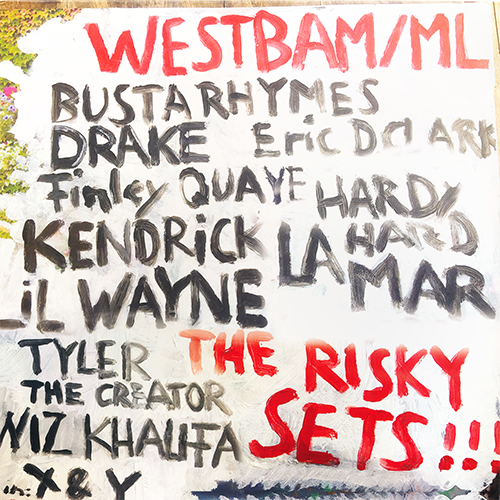 WESTBAM/ML
BUSTA RHYMES
DRAKE Eric D CLARK
Finley QUAYE HARDY HARD
KENDRiCK LAMAR
LiL WAYNE
TYLER THE CREATOR
WIZ KHALIFA
in: X & Y
THE RISKY SETS!!!